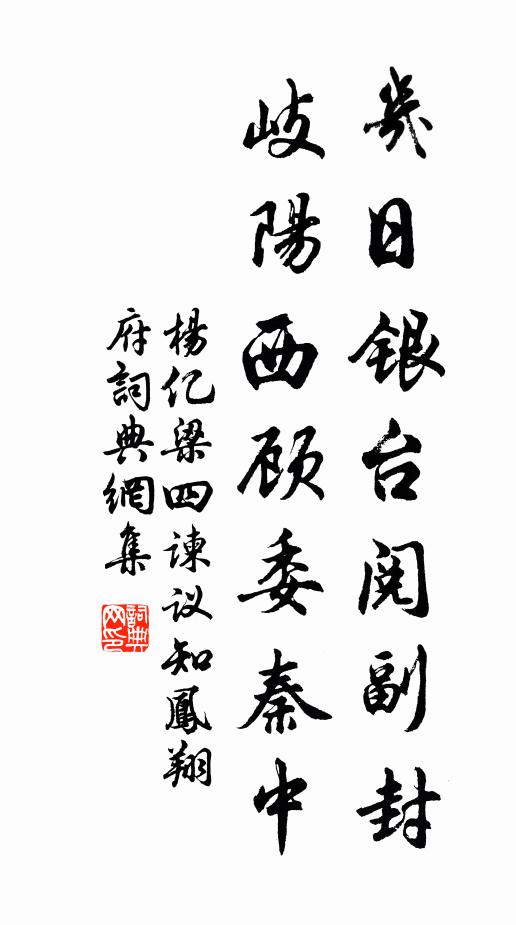 幾日銀台閱副封
岐陽西顾委秦中
楊亿梁四諫议知鳳翔
府詞典網集
詞典网印